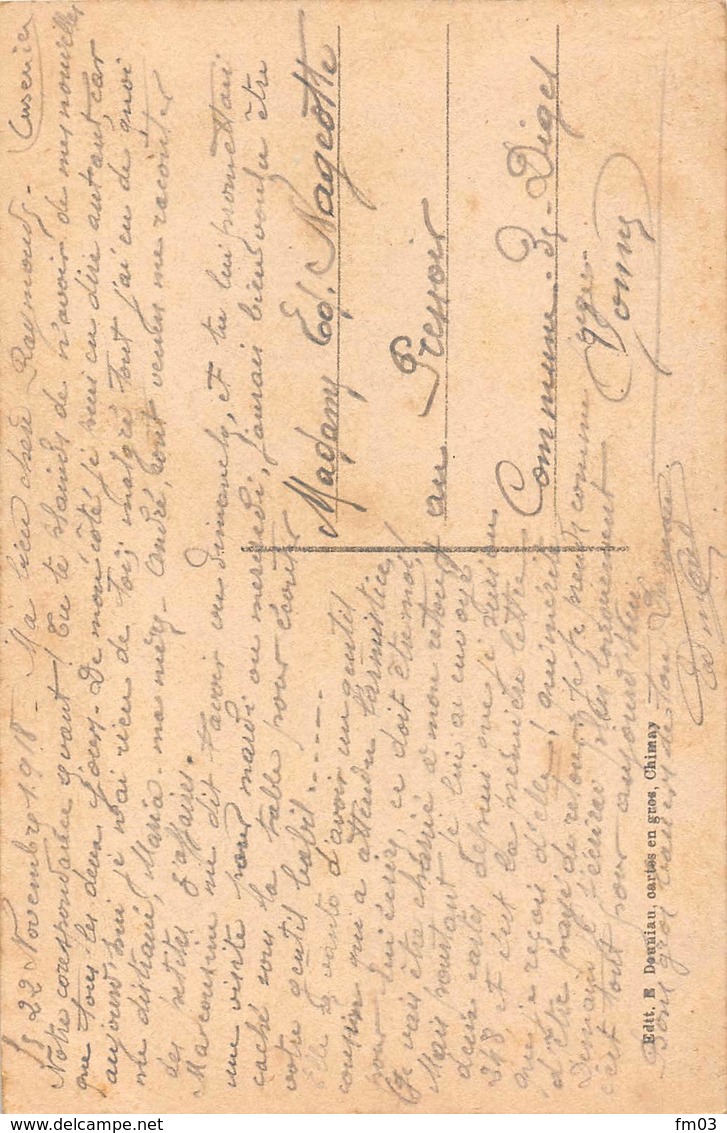 Le 22 Novembre 1918 - Ma bien chère Raymonde -
Notre correspondance avant! Tu te plainds de n'avoir de mes nouvelles
que tous les deux jours - De mon côté je puis en dire autant, car
aujourd'hui je n'ai rien de toi; malgré tout j'ai eu de quoi
me distraire, Maria - ma mère - André, sont venus me raconter
des petites affaires.
Ma cousine me dit t'avoir vu dimanche, et tu lui promettais
une visite pour mardi ou mercredi, j'aurais bien voulu être
caché sous la table pour écouter
votre gentil babil .....
Elle se vante d'avoir un gentil
cousin qui a attendu l'armistice
pour lui écrire, ce doit être moi!
Je vais être chassé à mon retour
Mais pourtant je lui ai envoyé
deux cartes depuis que je suis au
248 et c'est la première lettre
que je reçois d'elle; qui mérite
d'être payé de retour, je te prends comme juge.
Demain j'écrirai plus longuement
c'est tout pour aujourd'hui
Bons gros baisers de ton
Edouard
Madame Ed. Nageotte
au Pressoir
Commune Diges
Yonne
Edit. E Douniau, cartes en gros, Chimay
fm03